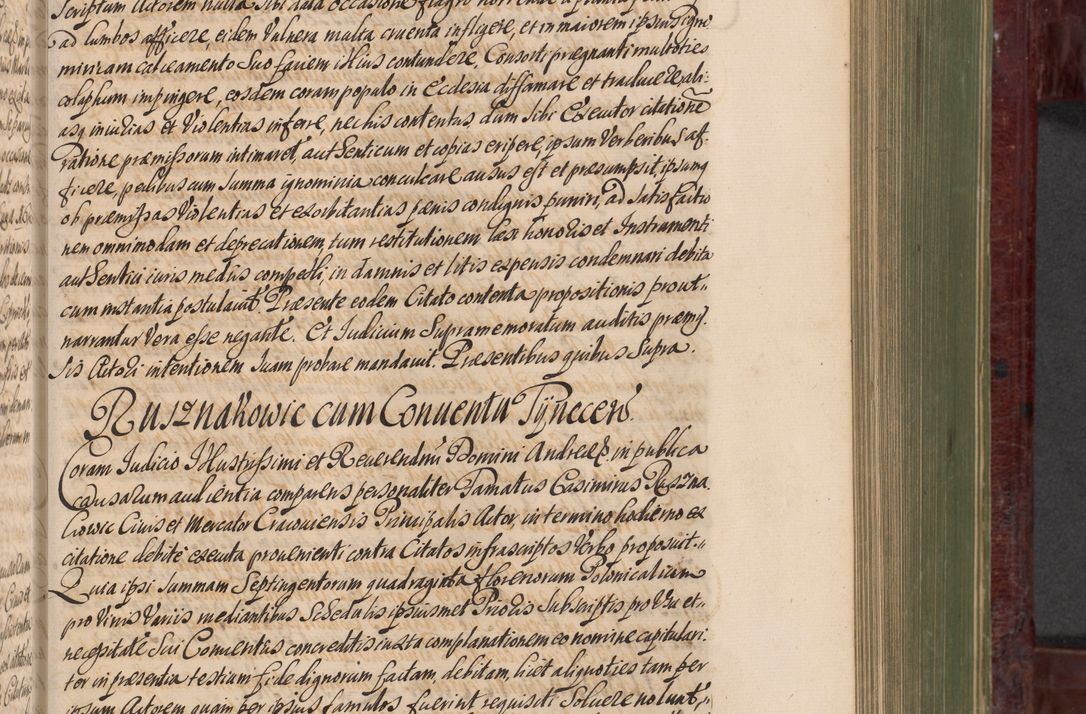 Scriptum Actorem nulla sibi data occasione flagro
ad lumbos afficere, eidem Vulnera multa cruenta infligere, et in maiorem ipsius igno
miniam calceamento Suo faciem illius contundere, Consorti prægnanti multoties
colaphum impingere, eosdem coram populo in Ecclesia diffamare et traducere, ali-
asq iniurias et Violentias inferre, nec his contentus, dum sibi Executor citatione
ratione præmissorum intimaret, authenticum et copias eripere, ipsum Verberibus af-
ficere, pedibus cum summa ignominia conculcare ausus est et præsumpsit, ipsumq
ob præmissas Violentias et exorbitantias pænis condignis puniri, ad satisfactio
nem omnimodam et deprecationem, tum restitutionem læsi honoris et Instrumenti
authentici iuris mediis compelli, in damnis et litis expensis condemnari debita
cum instantia postulauit. Præsente eodem Citato contenta propositionis prout-
narrantur Vera esse negante. Et Iudicium Supramemoratum auditis præmis.
sis Actori intentionem suam probare mandauit. Præsentibus quibus Supra.
Rusznakowic cum Conuentu Tÿnecen.
Coram Iudicio Illustrissimi et Reuerendmi Domini Andreæ P. in publica
causarum audientia comparens personaliter Famatus Casimirus Ruszna.
kowic Ciuis et Mercator Cracouiensis Principalis Actor, in termino hodierno ex
citatione debite executa prouenienti contra Citatos infrascriptos Verbo proposuit.
Quia ipsi summam Septingentorum quadraginta florenorum Polonicalium
pro Vinis Variis mediantibus Schedulis ipsiusmet Prioris subscriptis pro Vsu et
necessitate Sui Conuentus concreditis iuxta complanationem eo nomine capitulari-
ter in præsentia testium fide dignorum factam, debitam, licet aliquoties tam per
ipsum Actorem quam per ipsius famulos fuerint requisiti Soluere noluit,